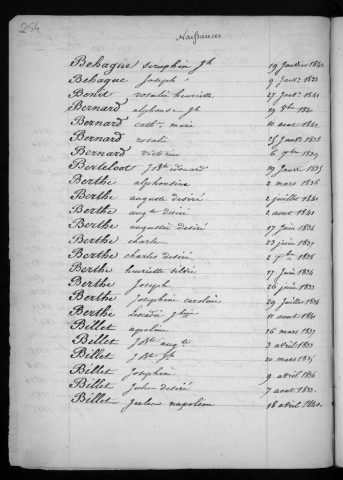 254
Naissances
Behague Seraphin Jh 19 Janvier 1842
Behague Joseph 9 Janv. 1833
Bonit rosalie henriette 27 Janv. 1841
Bernard alphonse Jh 19 8bre 1840
Bernard cath. marie 10 aout 1842
Bernard rosalie 25 Janv. 1838
Bernard victoire 6 7bre 1839
Berteloot J Bte édouard 19 Janvier 1835
Berthe alphonsine 2 mars 1836
Berthe auguste désiré 2 juillet 1841
Berthe augte désiré 2 aout 1841
Berthe augustin désiré 17 Juin 1834
Berthe charles 23 juin 1837
Berthe charles désiré 2 7bre 1838
Berthe henriette 17 Juin 1834
Berthe Joseph 26 juin 1833
Berthe Josephine caroline 29 Juillet 1838
Berthe Leocadie 11 aout 1841
Billet apoline 16 mars 1837
Billet J Bte augte 3 avril 1837
Billet J Bte Jh 20 mars 1835
Billet Josephine 9 avril 1836
Billet Jules désiré 7 aout 1833
Billet Jules napoléon 18 avril 1840